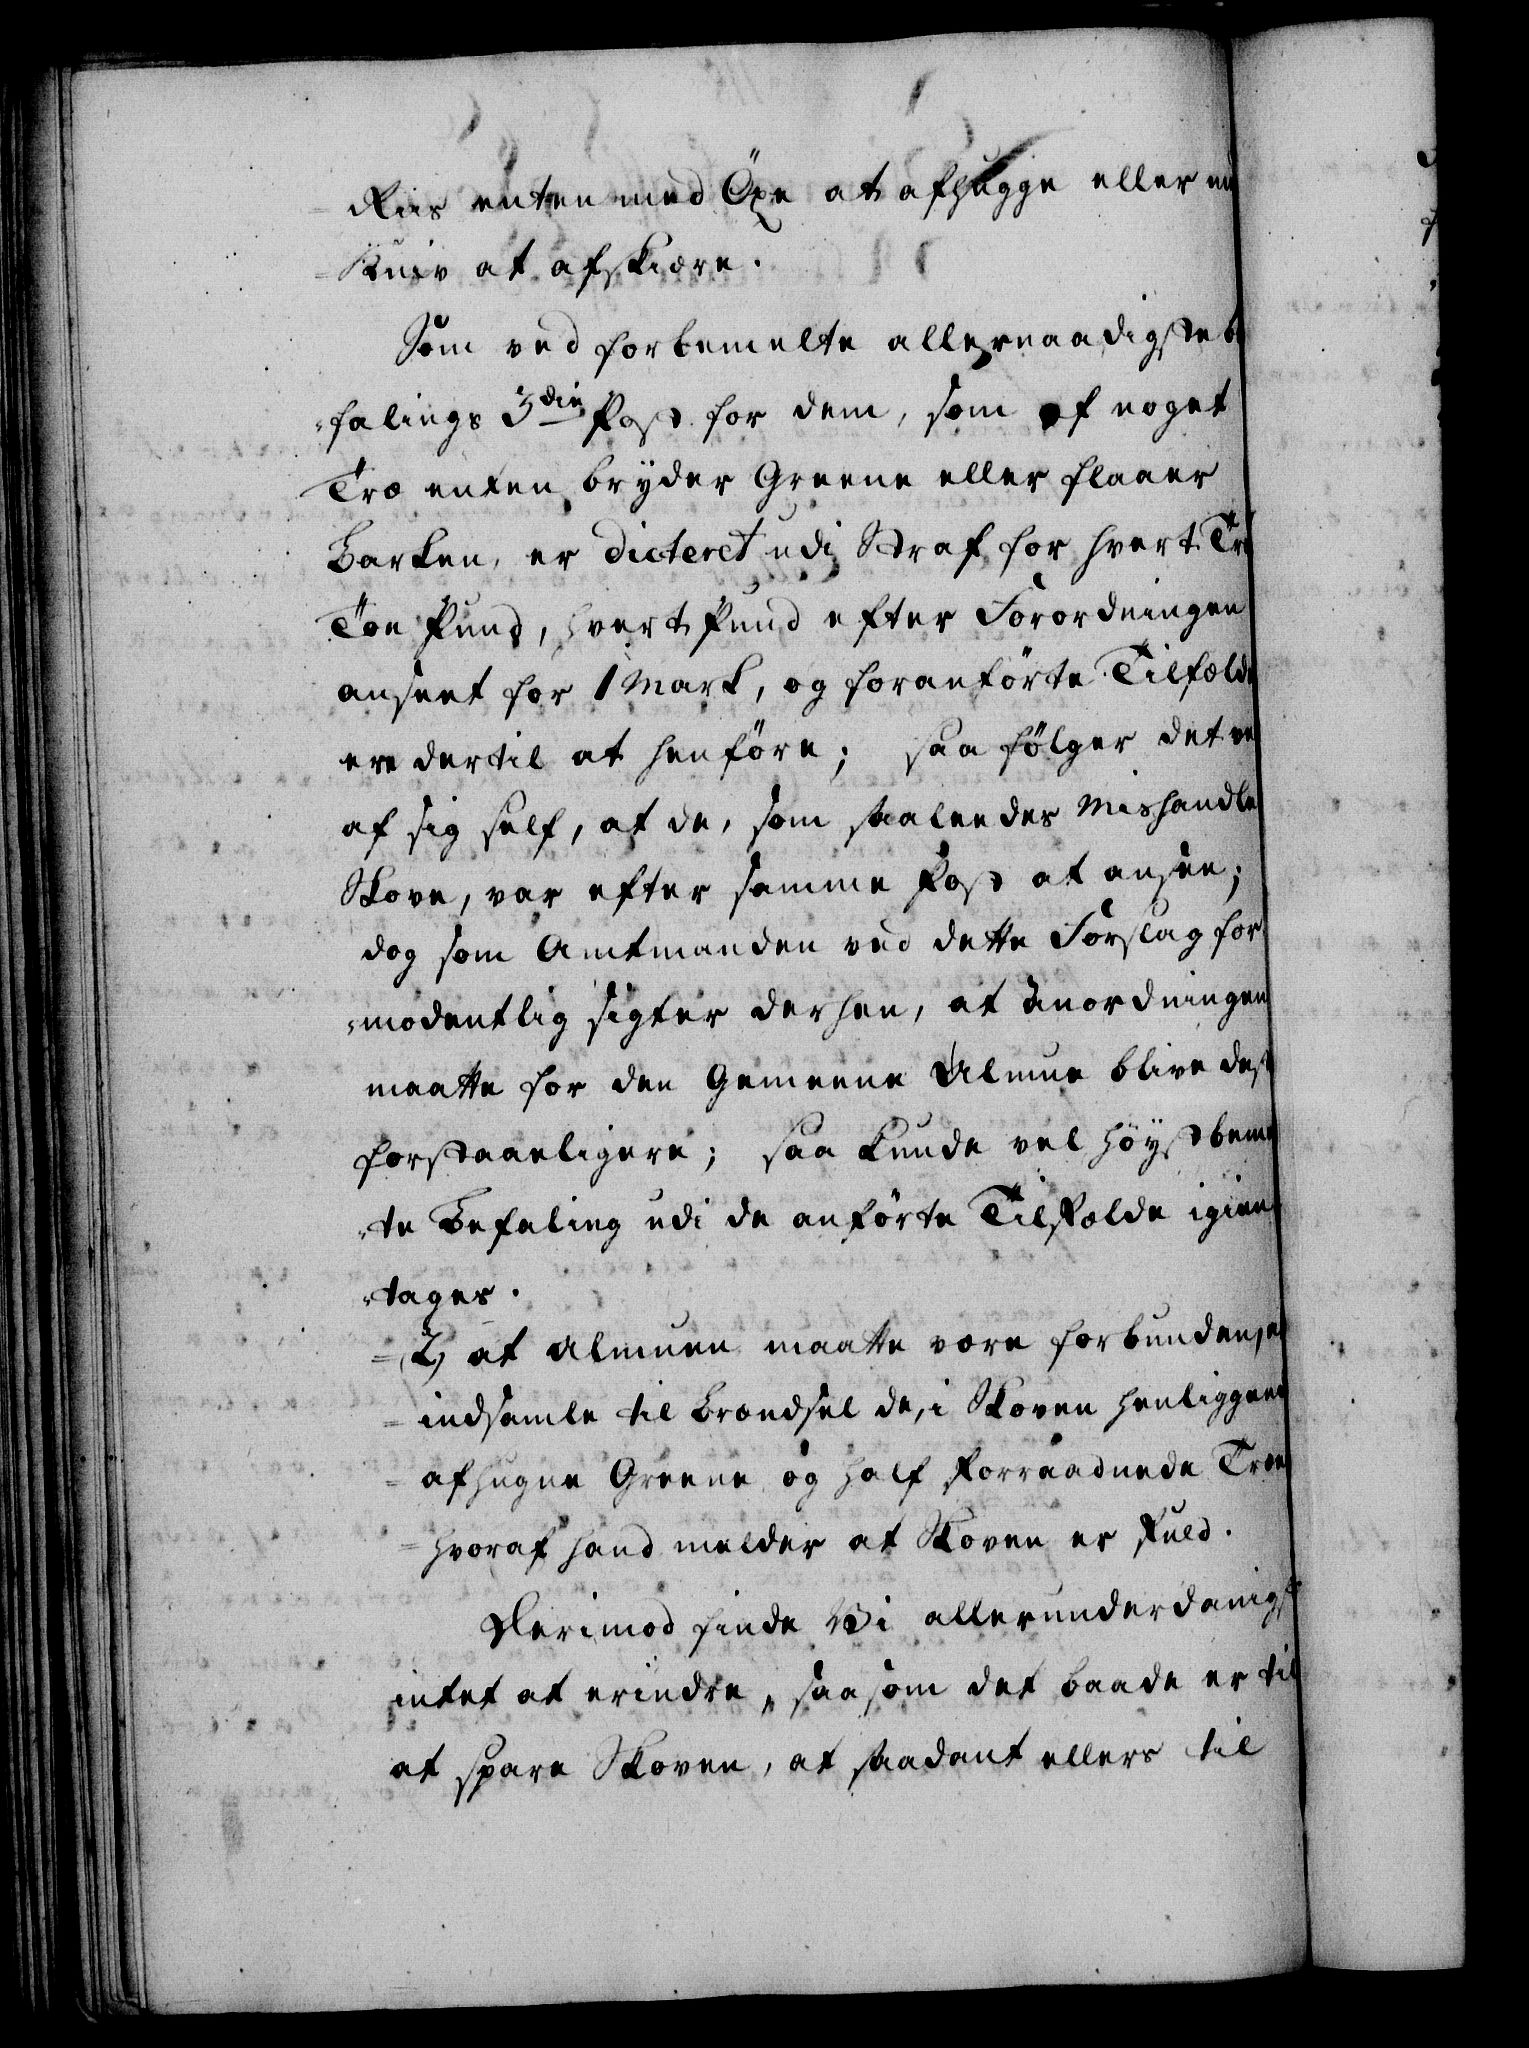 Riis enten med Öxe at afhugge eller
Kniv at afskiære.
Som ved forbemelte allernaadigste be
falings 3die Post for dem, som af noget
Træ enten bryder Greene eller flaaer
Barken, er dicteret udi Straf for hvert Træ
Toe Pund, hvert Pund efter Forordningen
anseet for 1 Mark, og foranførte Tilfælde
ere dertil at henføre; saa følger det
af sig self, at de, som saaleedes Mishandle
Skove, var efter samme Post at ansee;
dog som Amtmanden ved dette Forslag for
modentlig sigter derhen, at Anordningen
maatte for den Gemeene Almue blive dest
forstaaeligere; saa kunde vel Høystbemel
te Befaling udi de anførte Tilfælde igien
tages.
2) at Almuen maatte være forbunden, at
indsamle til Brændsel de, i Skoven henliggende
afhugne Greene og half forraadnede Træer
hvoraf hand melder at Skoven er fuld.
Herimod finde Vi allerunderdanigst
intet at erindre, saasom det baade er til
at spare Skoven, at saadant ellers til